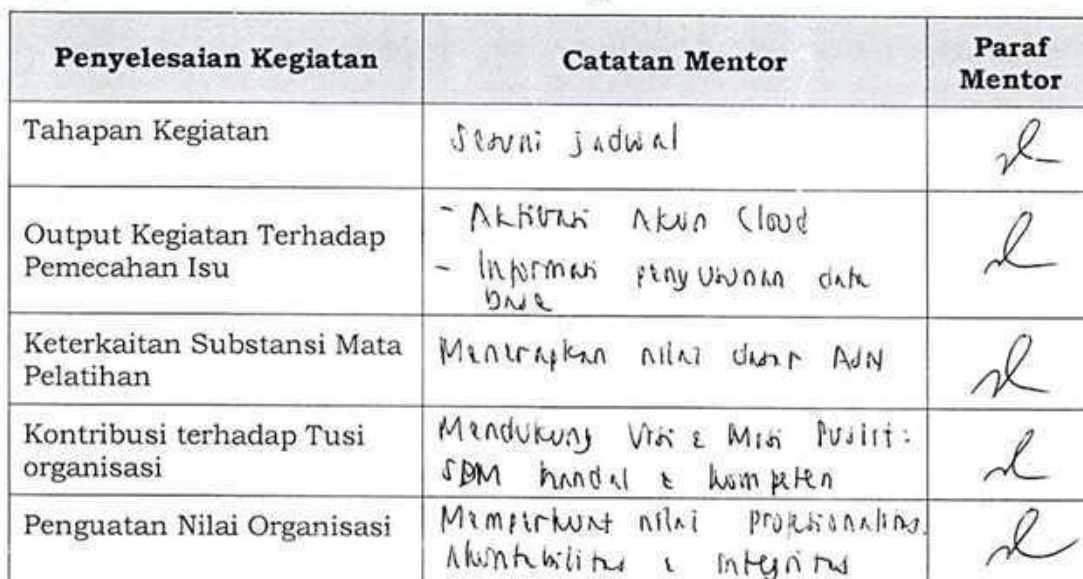 Penyelesaian Kegiatan
Catatan Mentor
Paraf
Mentor
Tahapan Kegiatan
Sesuai jadwal
Output Kegiatan Terhadap
Pemecahan Isu
- Aktivasi Akun Cloud
- Informasi penyusunan data
base
Keterkaitan Substansi Mata
Pelatihan
Menerapkan nilai dasar ASN
Kontribusi terhadap Tusi
organisasi
Mendukung Visi & Misi Puslit:
SDM handal & kompeten
Penguatan Nilai Organisasi
Memperkuat nilai profesionalitas,
Akuntabilitas & integritas